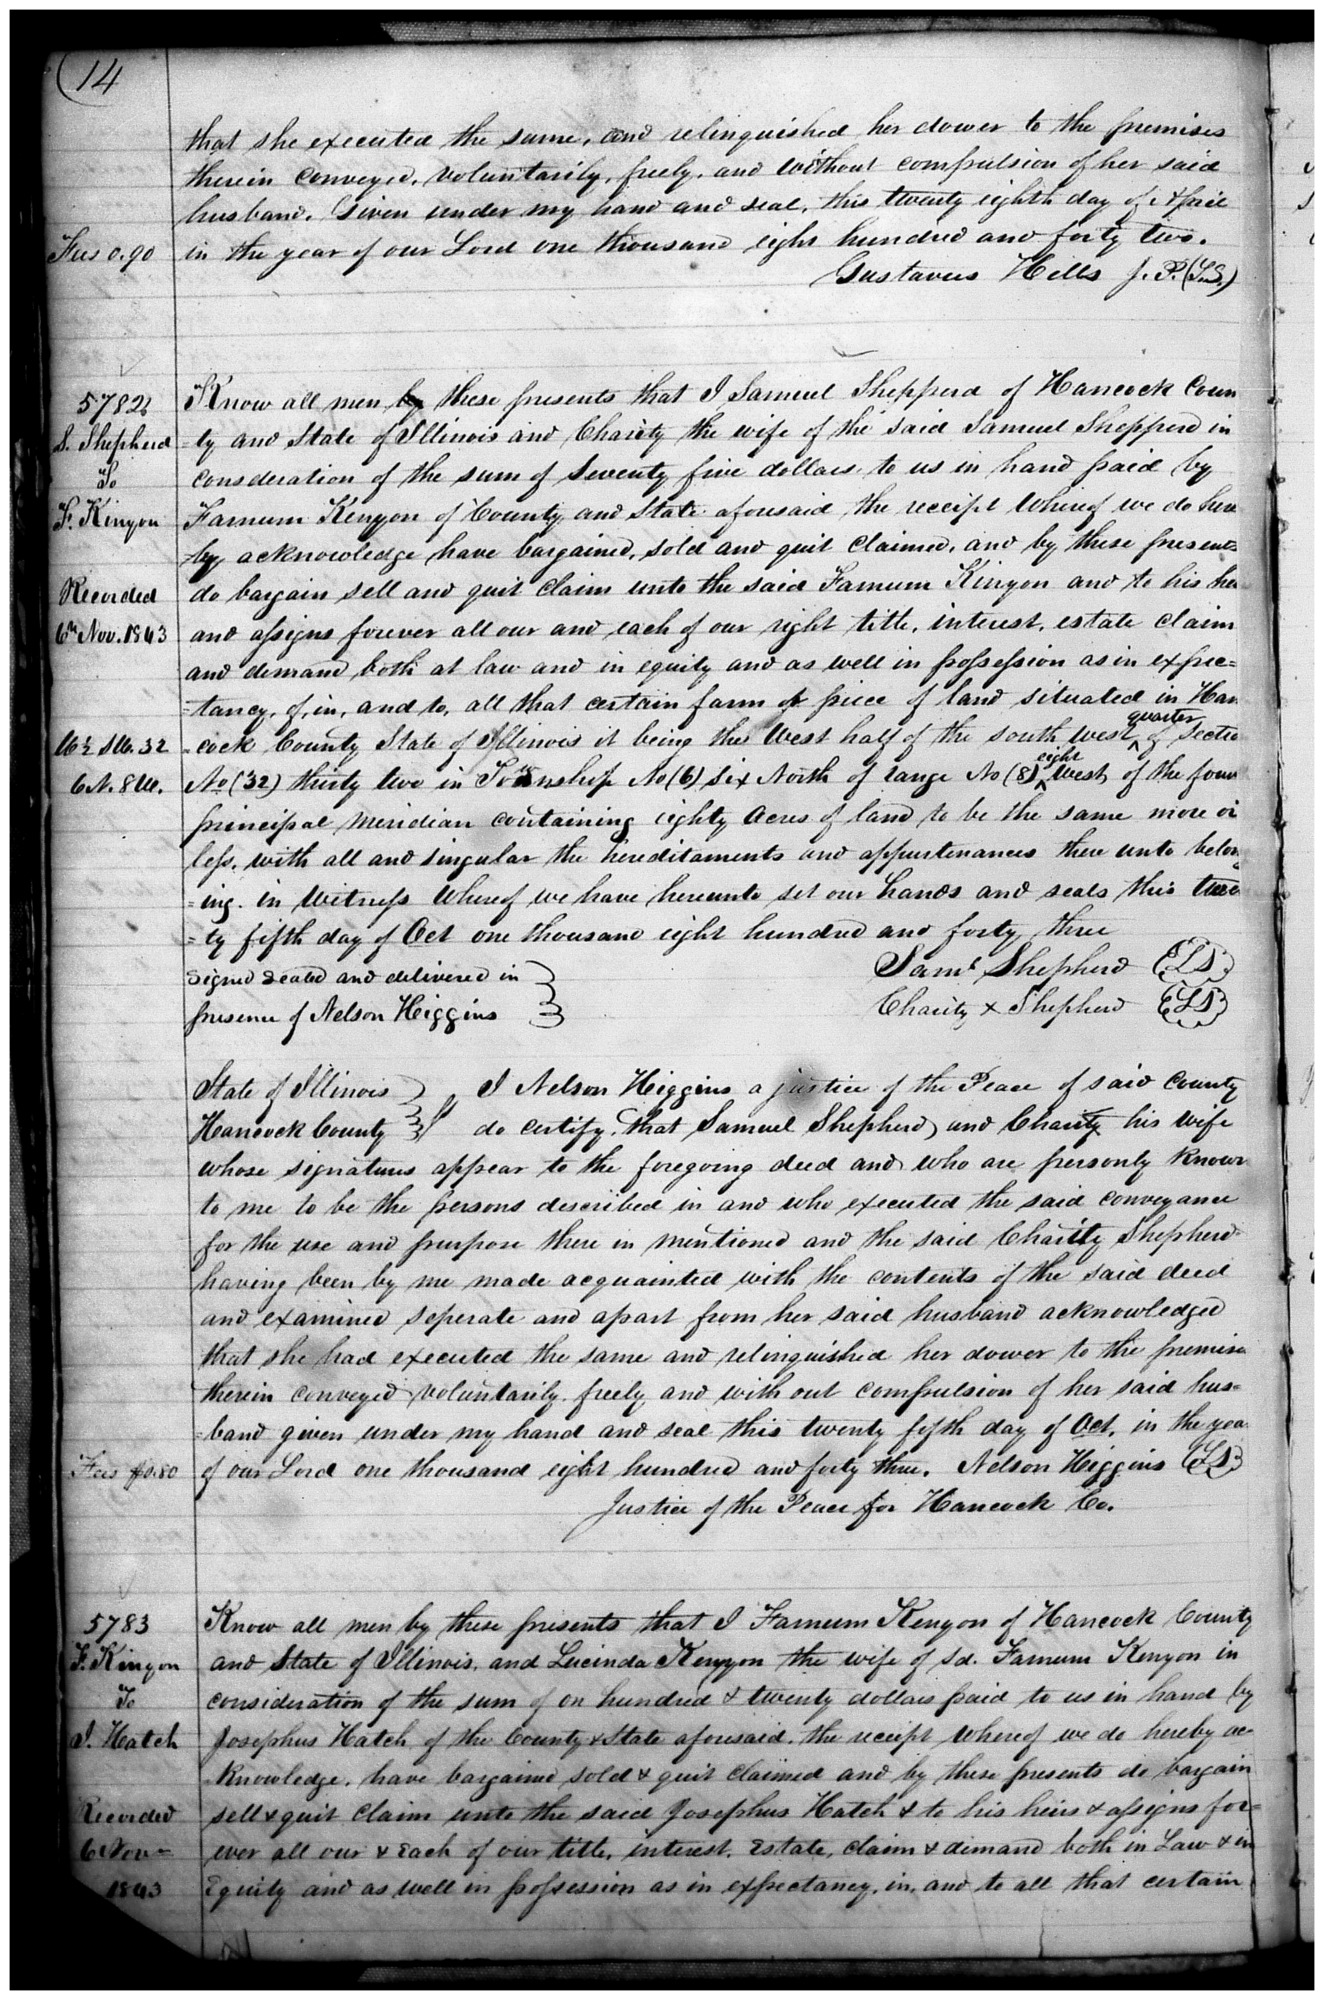 14
that she executed the same, and relinquished her dower to the premises
therein conveyed, voluntarily, freely, and without compulsion of her said
husband. Given under my hand and seal, this twenty eighth day of April
Fees 0.90
in the year of our Lord one thousand eight hundred and forty two.
Gustavus Hills J. P. (L.S.)
5782
S. Shepherd
To
F. Kinyon
Recorded
6th Nov. 1843
W½ SW. 32
6 N. 8 W.
Know all men by these presents that I Samuel Shepperd of Hancock Coun
=ty and State of Illinois and Charity the wife of the said Samuel Shepperd in
consderation of the sum of Seventy five dollars to us in hand paid by
Farnum Kenyon of County and State aforesaid the receipt whereof we do here
by acknowledge have bargained, sold and quit claimed, and by these presents
do bargain sell and quit claim unto the said Farnum Kinyon and to his hei
and assigns forever all our and each of our right title, interest, estate claim
and demand both at law and in equity and as well in possession as in expec=
=tancy, of, in, and to, all that certain farm or piece of land situated in Han
=cock County State of Illinois it being the West half of the south west quarter of Sectio
No (32) thirty two in Township No (6) six North of range No (8) eight West of the four
principal meridian containing eighty acres of land to be the same more or
less, with all and singular the hereditaments and appurtenances there unto belon
=ing. in witness whereof we have hereunto set our hands and seals this twen
=ty fifth day of Oct one thousand eight hundred and forty three
Signed sealed and delivered in
presence of Nelson Higgins
Saml Shepherd (LS)
Charity x Shepherd (LS)
State of Illinois
Hancock County
I Nelson Higgins a justice of the Peace of said County
do certify, that Samuel Shepherd, and Charity his wife
whose signatures appear to the foregoing deed and who are personly known
to me to be the persons described in and who executed the said conveyance
for the use and purpose there in mentioned and the said Charity Shepherd
having been by me made acquainted with the contents of the said deed
and examined seperate and apart from her said husband acknowledged
that she had executed the same and relinquished her dower to the premise
therein conveyed voluntarily freely and with out compulsion of her said hus=
=band given under my hand and seal this twenty fifth day of Oct. in the yea
Fees $0.80
of our Lord one thousand eight hundred and forty three. Nelson Higgins (LS)
Justice of the Peace for Hancock Co.
5783
F. Kinyon
To
J. Hatch
Recorded
6 Nov=
1843
Know all men by these presents that I Farnum Kenyon of Hancock County
and State of Illinois, and Lucinda Kenyon the wife of sd. Farnum Kenyon in
consideration of the sum of on hundred & twenty dollars paid to us in hand by
Josephus Hatch of the County & State aforesaid, the receipt whereof we do hereby ac=
knowledge, have bargained sold & quit claimed and by these presents do bargain
sell & quit claim unto the said Josephus Hatch & to his heirs & assigns for=
ever all our & Each of our title, interest, Estate, claim & demand both in Law & in
Equity and as well in possession as in expectancy, in, and to all that certain